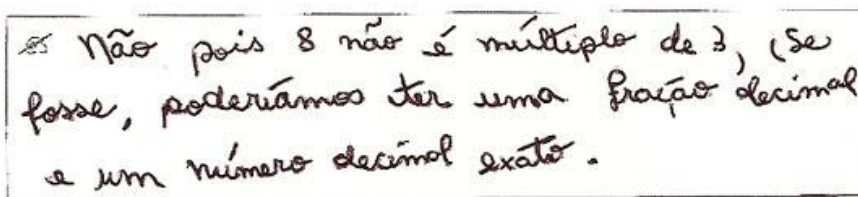 Não pois 8 não é múltiplo de 3, (Se
fosse, poderíamos ter uma fração decimal
e um número decimal exato.